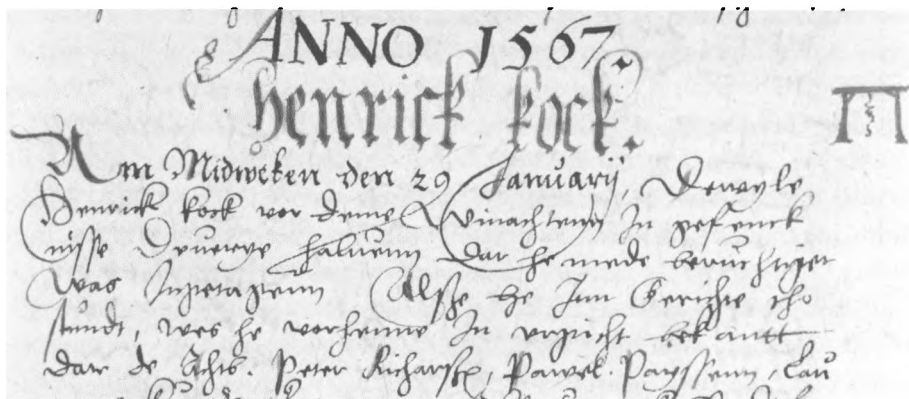 ANNO 1567
Henrick Kock.
Am Midweken den 29 Januarij, Dewyle
Henrick Kock vor deme Winachtenn In gefenck
nisse Deuerye haluenn Dar he mede beruchtiget
was Ingetagenn Alsse he Inn Gerichte tho
stundt, wes he vorhenne In vrgicht bekantt
dar de Achts Peter Richarts, Pawel Payssenn, Lau